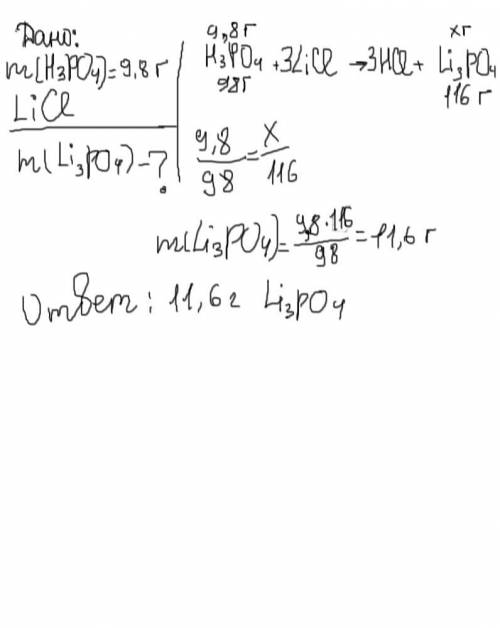 Дано:
m(H₃PO₄)=9,8 г
LiCl
m(Li₃PO₄)-?
9,8г xг
H₃PO₄ + 3LiCl → 3HCl + Li₃PO₄
98г 116 г
9,8/98 = X/116
m(Li₃PO₄)= 9,8·116/98 = 11,6 г
Ответ: 11,6г Li₃PO₄